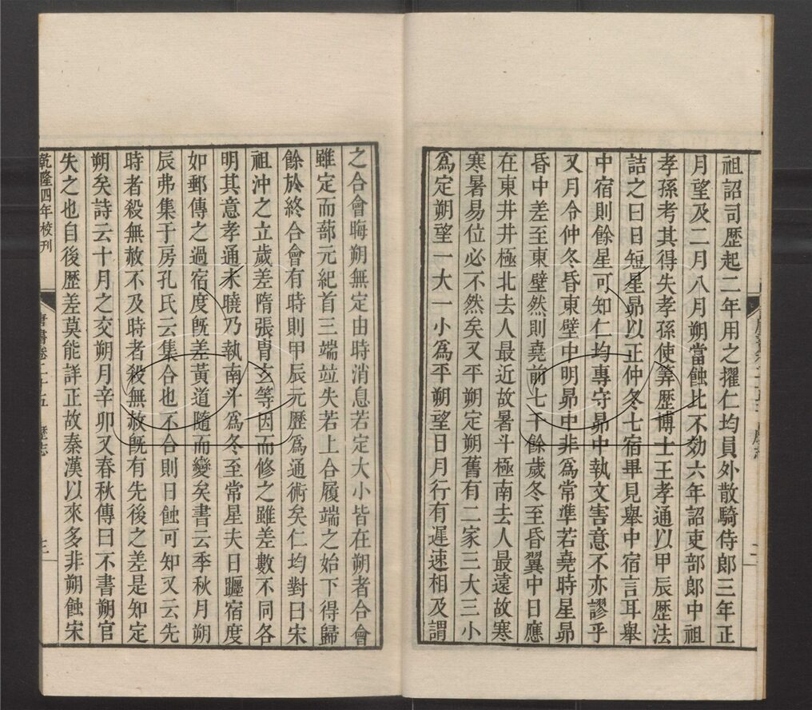 祖詔司歷起二年用之擢仁均員外散騎侍郎三年正
月望及二月八月朔當蝕比不効六年詔吏部郎中祖
孝孫考其得失孝孫使筭歷博士王孝通以甲辰歷法
詰之曰日短星昴以正仲冬七宿畢見舉中宿言耳舉
中宿則餘星可知仁均專守昴中執文害意不亦謬乎
又月令仲冬昏東壁中明昴中非爲常準若堯時星昴
昏中差至東壁然則堯前七千餘歲冬至昏翼中日應
在東井井極北去人最近故暑斗極南去人最遠故寒
寒暑易位必不然矣又平朔定朔舊有二家三大三小
爲定朔望一大一小爲平朔望日月行有遲速相及謂
之合會晦朔無定由時消息若定大小皆在朔者合會
雖定而蔀元紀首三端竝失若上合履端之始下得歸
餘於終合會有時則甲辰元歷爲通術矣仁均對曰宋
祖沖之立歲差隋張胄玄等因而修之雖差數不同各
明其意孝通未曉乃執南斗爲冬至常星夫日躔宿度
如郵傳之過宿度旣差黃道隨而變矣書云季秋月朔
辰弗集于房孔氏云集合也不合則日蝕可知又云先
時者殺無赦不及時者殺無赦旣有先後之差是知定
朔矣詩云十月之交朔月辛卯又春秋傳曰不書朔官
失之也自後歷差莫能詳正故秦漢以來多非朔蝕宋
乾隆四年校刊
唐書卷二十五 歷志
三